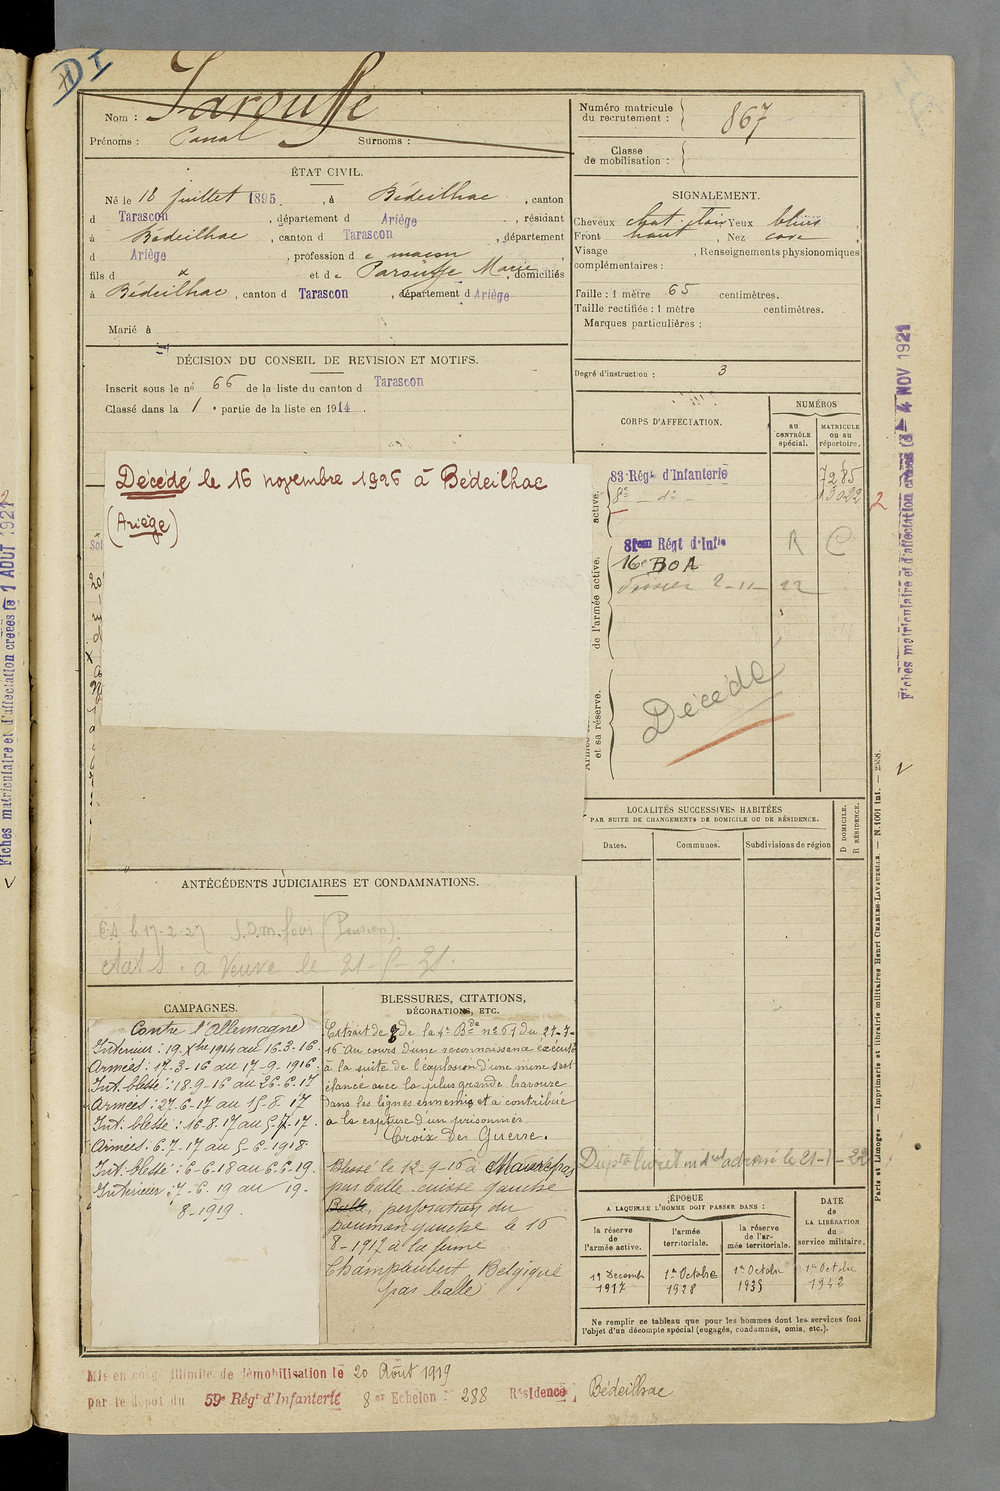 D I
Nom : Parouffe
Prénoms : Canal Surnoms :
ÉTAT CIVIL.
Né le 18 juillet 1895, à Bédeilhac, canton
d Tarascon, département d Ariège, résidant
à Bédeilhac, canton d Tarascon, département
d Ariège, profession d e maçon,
fils d x et d e Parouffe Marie, domiciliés
à Bédeilhac, canton d Tarascon, département d Ariège
Marié à
DÉCISION DU CONSEIL DE REVISION ET MOTIFS.
Inscrit sous le no 66 de la liste du canton d Tarascon
Classé dans la 1e partie de la liste en 1914.
Décédé le 16 novembre 1926 à Bédeilhac
(Ariège)
ANTÉCÉDENTS JUDICIAIRES ET CONDAMNATIONS.
17-2-27 (Pension).
état S. à Veuve le 21-5-31.
CAMPAGNES.
Contre l'Allemagne
Intérieur : 19. Xbre 1914 au 16-3-16.
Armées : 17-3-16 au 17-9-1916.
Int. blessé : 18-9-16 au 26-6-17
Armées : 27-6-17 au 15-8-17
Int. blessé : 16-8-17 au 5-7-17.
Armées : 6-7-17 au 5-6-1918.
Int. blessé : 6-6-18 au 6-6-19.
Intérieur : 7-6-19 au 19-
8-1919.
BLESSURES, CITATIONS,
DÉCORATIONS, ETC.
Extrait de de la 4e Bde no 61 du 27-7-
16 Au cours d'une reconnaissance exécuté
à la suite de l'explosion d'une mine s'est
élancé avec la plus grande bravoure
dans les lignes ennemis et a contribué
a la capture d'un prisonnier
Croix de Guerre.
Blessé le 12-9-16 à Maurepas
par balle cuisse gauche
Balle, perforation du
poumon gauche le 16
8-1917 à la ferme
Champaubert Belgique
par balle
Numéro matricule
du recrutement : 867
Classe
de mobilisation :
SIGNALEMENT.
Cheveux chat clair Yeux bleus
Front haut, Nez cave,
Visage , Renseignements physionomiques
complémentaires :
Taille : 1 mètre 65 centimètres.
Taille rectifiée : 1 mètre centimètres.
Marques particulières :
Degré d'instruction : 3
CORPS D'AFFECTATION.
NUMÉROS
au
CONTRÔLE
spécial.
MATRICULE
ou au
répertoire.
active.
83e Régt d'Infanterie 7285
8e — do — 13022
de l'armée active.
81em Régt d'Inf.ie R C
16e BOA
2-11-22
et sa réserve.
Décédé
LOCALITÉS SUCCESSIVES HABITÉES
PAR SUITE DE CHANGEMENTS DE DOMICILE OU DE RÉSIDENCE.
Dates. Communes. Subdivisions de région
D DOMICILE.
R RÉSIDENCE.
Dupta livret indel adressé le 21-1-22
ÉPOQUE
A LAQUELLE L'HOMME DOIT PASSER DANS :
DATE
de
LA LIBÉRATION
du
service militaire.
la réserve
de
l'armée active.
l'armée
territoriale.
la réserve
de l'ar-
mée territoriale.
19 Décemb 1917
1er Octobre 1928
1er Octobre 1935
1er Octobre 1942
Ne remplir ce tableau que pour les hommes dont les services font
l'objet d'un décompte spécial (engagés, condamnés, omis, etc.).
Mis en congé illimité de démobilisation le 20 Août 1919
par le dépôt du 59e Régt d'Infanterie 8er Echelon : 288 Résidence : Bédeilhac
Paris et Limoges. — Imprimerie et librairie militaires Henri CHARLES-LAVAUZELLE. — N. 1001 int. — 2558.
Fiches matriculaire et d'affectation créées le 4 NOV 1921
2
Fiches matriculaire et d'affectation créées le 1 AOUT 1921